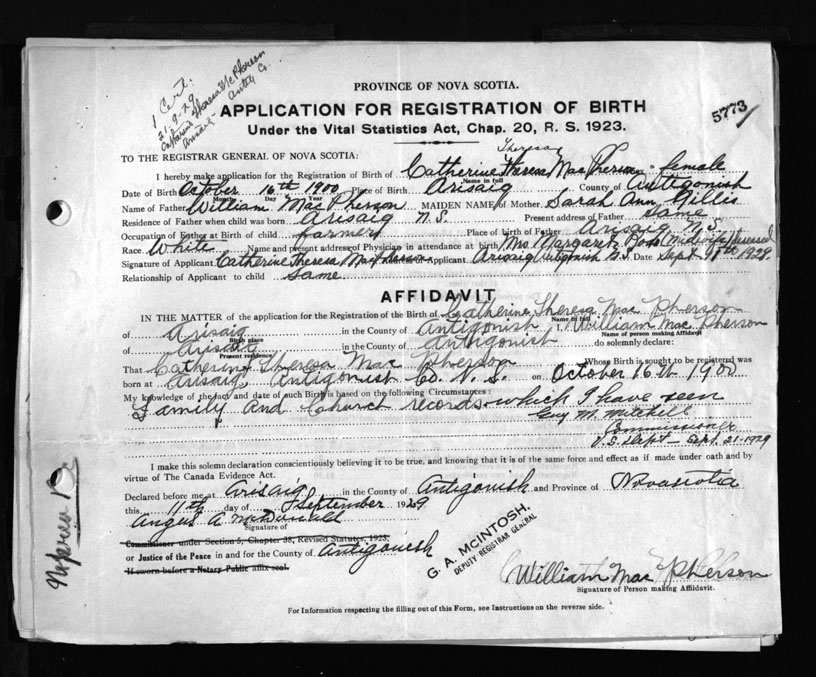 1 Cert.
21-9-29
Catherine Theresa McPherson
Arisaig Antig Co.
PROVINCE OF NOVA SCOTIA.
5773
APPLICATION FOR REGISTRATION OF BIRTH
Under the Vital Statistics Act, Chap. 20, R. S. 1923.
TO THE REGISTRAR GENERAL OF NOVA SCOTIA:
Theresa
I hereby make application for the Registration of Birth of Catherine Theresa MacPherson - female
Name in full
Date of Birth October 16th 1900 Place of Birth Arisaig County of Antigonish
Month Day Year
Name of Father William MacPherson MAIDEN NAME of Mother Sarah Ann Gillis
Residence of Father when child was born Arisaig N.S. Present address of Father same
Occupation of Father at Birth of child farmer Place of birth of Father Arisaig N.S.
Race White Name and present address of Physician in attendance at birth Mrs. Margaret Ross Midwife/deceased
Signature of Applicant Catherine Theresa MacPherson Address Arisaig Antigonish N.S. Date Sept 1929.
Relationship of Applicant to child same
AFFIDAVIT
IN THE MATTER of the application for the Registration of the Birth of Catherine Theresa Mac Pherson
Name in full
of Arisaig in the County of Antigonish I, William Mac Pherson
Birth place Name of person making Affidavit
of Arisaig in the County of Antigonish do solemnly declare:
Present residence
That Catherine Theresa Mac Pherson Whose Birth is sought to be registered was
born at Arisaig, Antigonish Co. N.S. on October 16th 1900
My knowledge of the fact and date of such Birth is based on the following Circumstances:
Family and Church records which I have seen
Guy M. Mitchell
Commissioner
V.S. Dept - Sept. 21-1929
I make this solemn declaration conscientiously believing it to be true, and knowing that it is of the same force and effect as if made under oath and by
virtue of The Canada Evidence Act.
Declared before me at Arisaig in the County of Antigonish and Province of Nova Scotia
this 11th day of September 1929
Angus A. McDonald
Signature of
Commissioner under Section 5, Chapter 38, Revised Statutes, 1923,
or Justice of the Peace in and for the County of Antigonish
If sworn before a Notary Public affix seal.
G. A. McINTOSH,
DEPUTY REGISTRAR GENERAL
William Mac Pherson
Signature of Person making Affidavit.
For Information respecting the filling out of this Form, see Instructions on the reverse side.